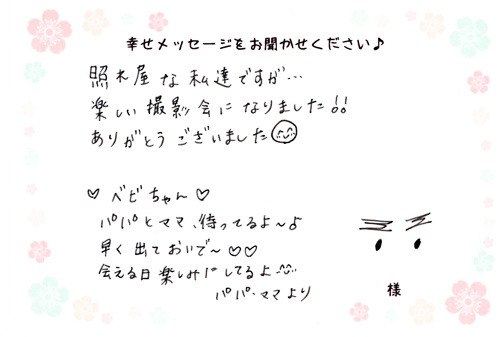 幸せメッセージをお聞かせください♪
照れ屋な私達ですが…
楽しい撮影会になりました!!
ありがとうございました
♡ベビちゃん♡
パパとママ、待ってるよ〜♪
早く出ておいで〜♡♡
会える日楽しみにしてるよ
パパ・ママより
様